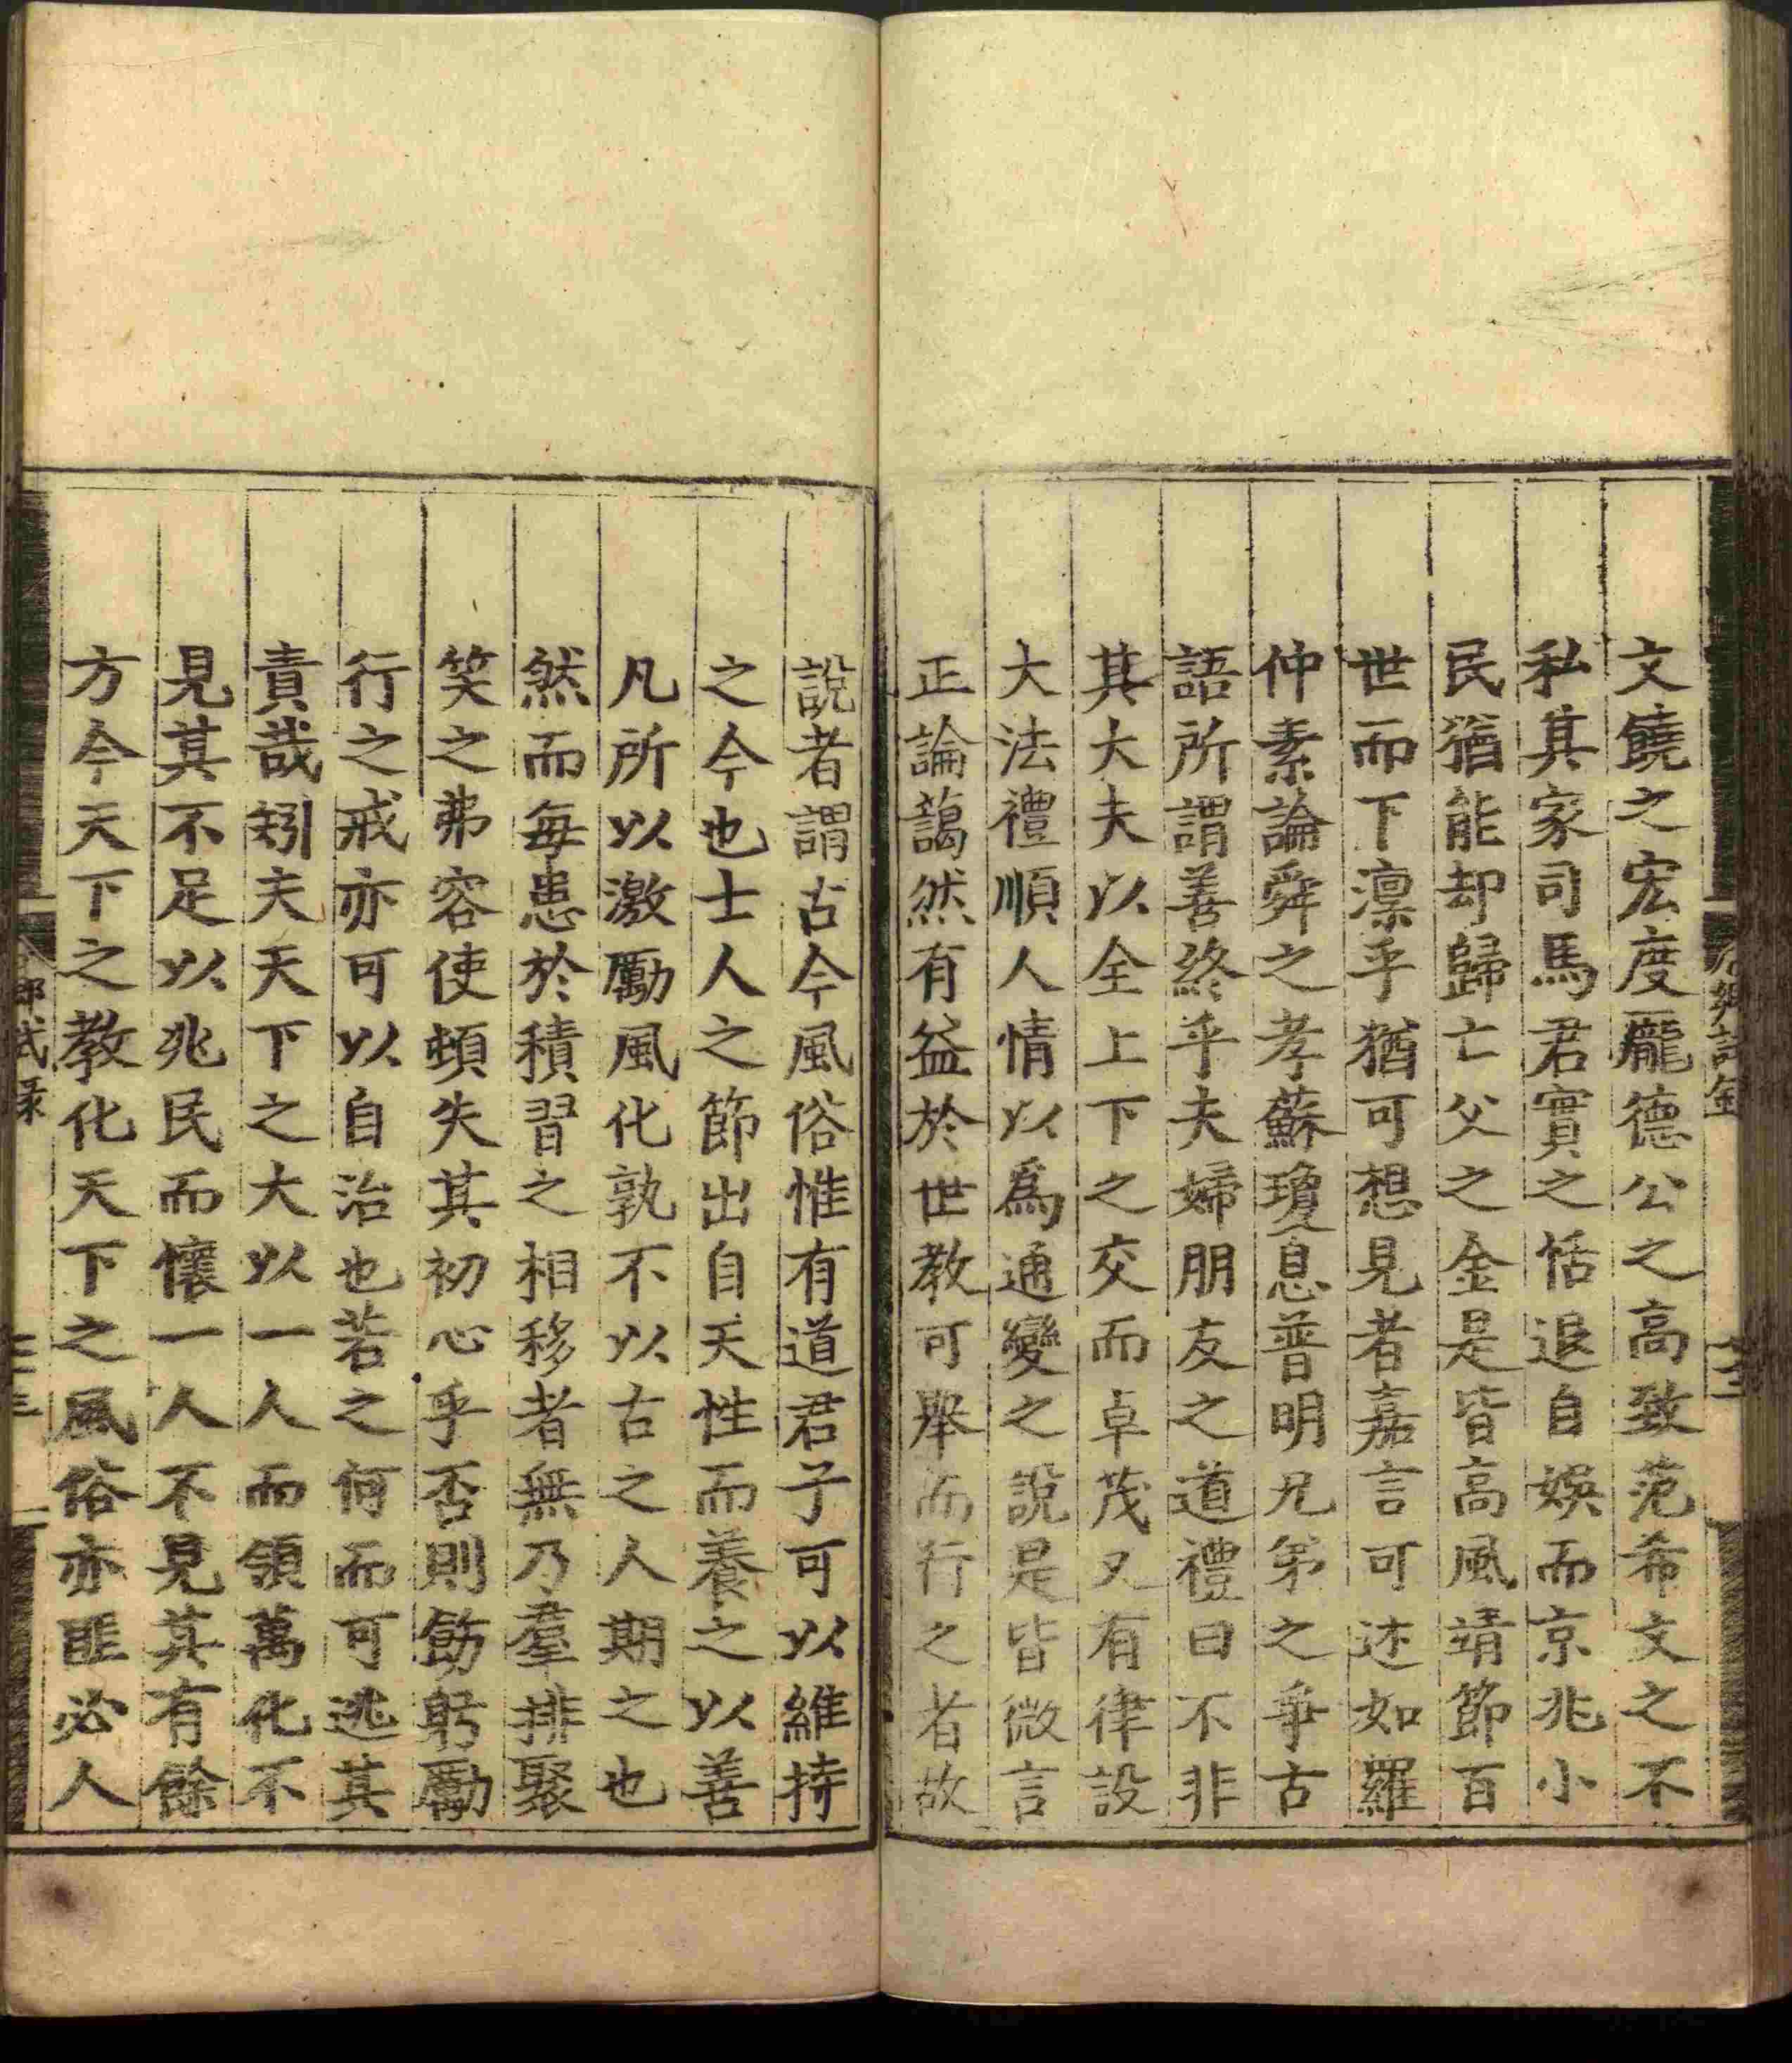 文饒之宏度龐德公之高致范希文之不
私其家司馬君實之恬退自娛而京兆小
民猶能却歸亡父之金是皆高風靖節百
世而下凛乎猶可想見者嘉言可述如羅
仲素論舜之孝蘇瓊息普明兄弟之爭古
語所謂善終乎夫婦朋友之道禮曰不非
其大夫以全上下之交而卓茂又有律設
大法禮順人情以為通變之說是皆微言
正論藹然有益於世教可舉而行之者故
說者謂古今風俗惟有道君子可以維持
之今也士人之節出自天性而養之以善
凡所以激勵風化孰不以古之人期之也
然而每患於積習之相移者無乃羣排聚
笑之弗容使頓失其初心乎否則飭躬勵
行之戒亦可以自治也若之何而可逃其
責哉矧夫天下之大以一人而領萬化不
見其不足以兆民而懷一人不見其有餘
方今天下之教化天下之風俗亦匪必人